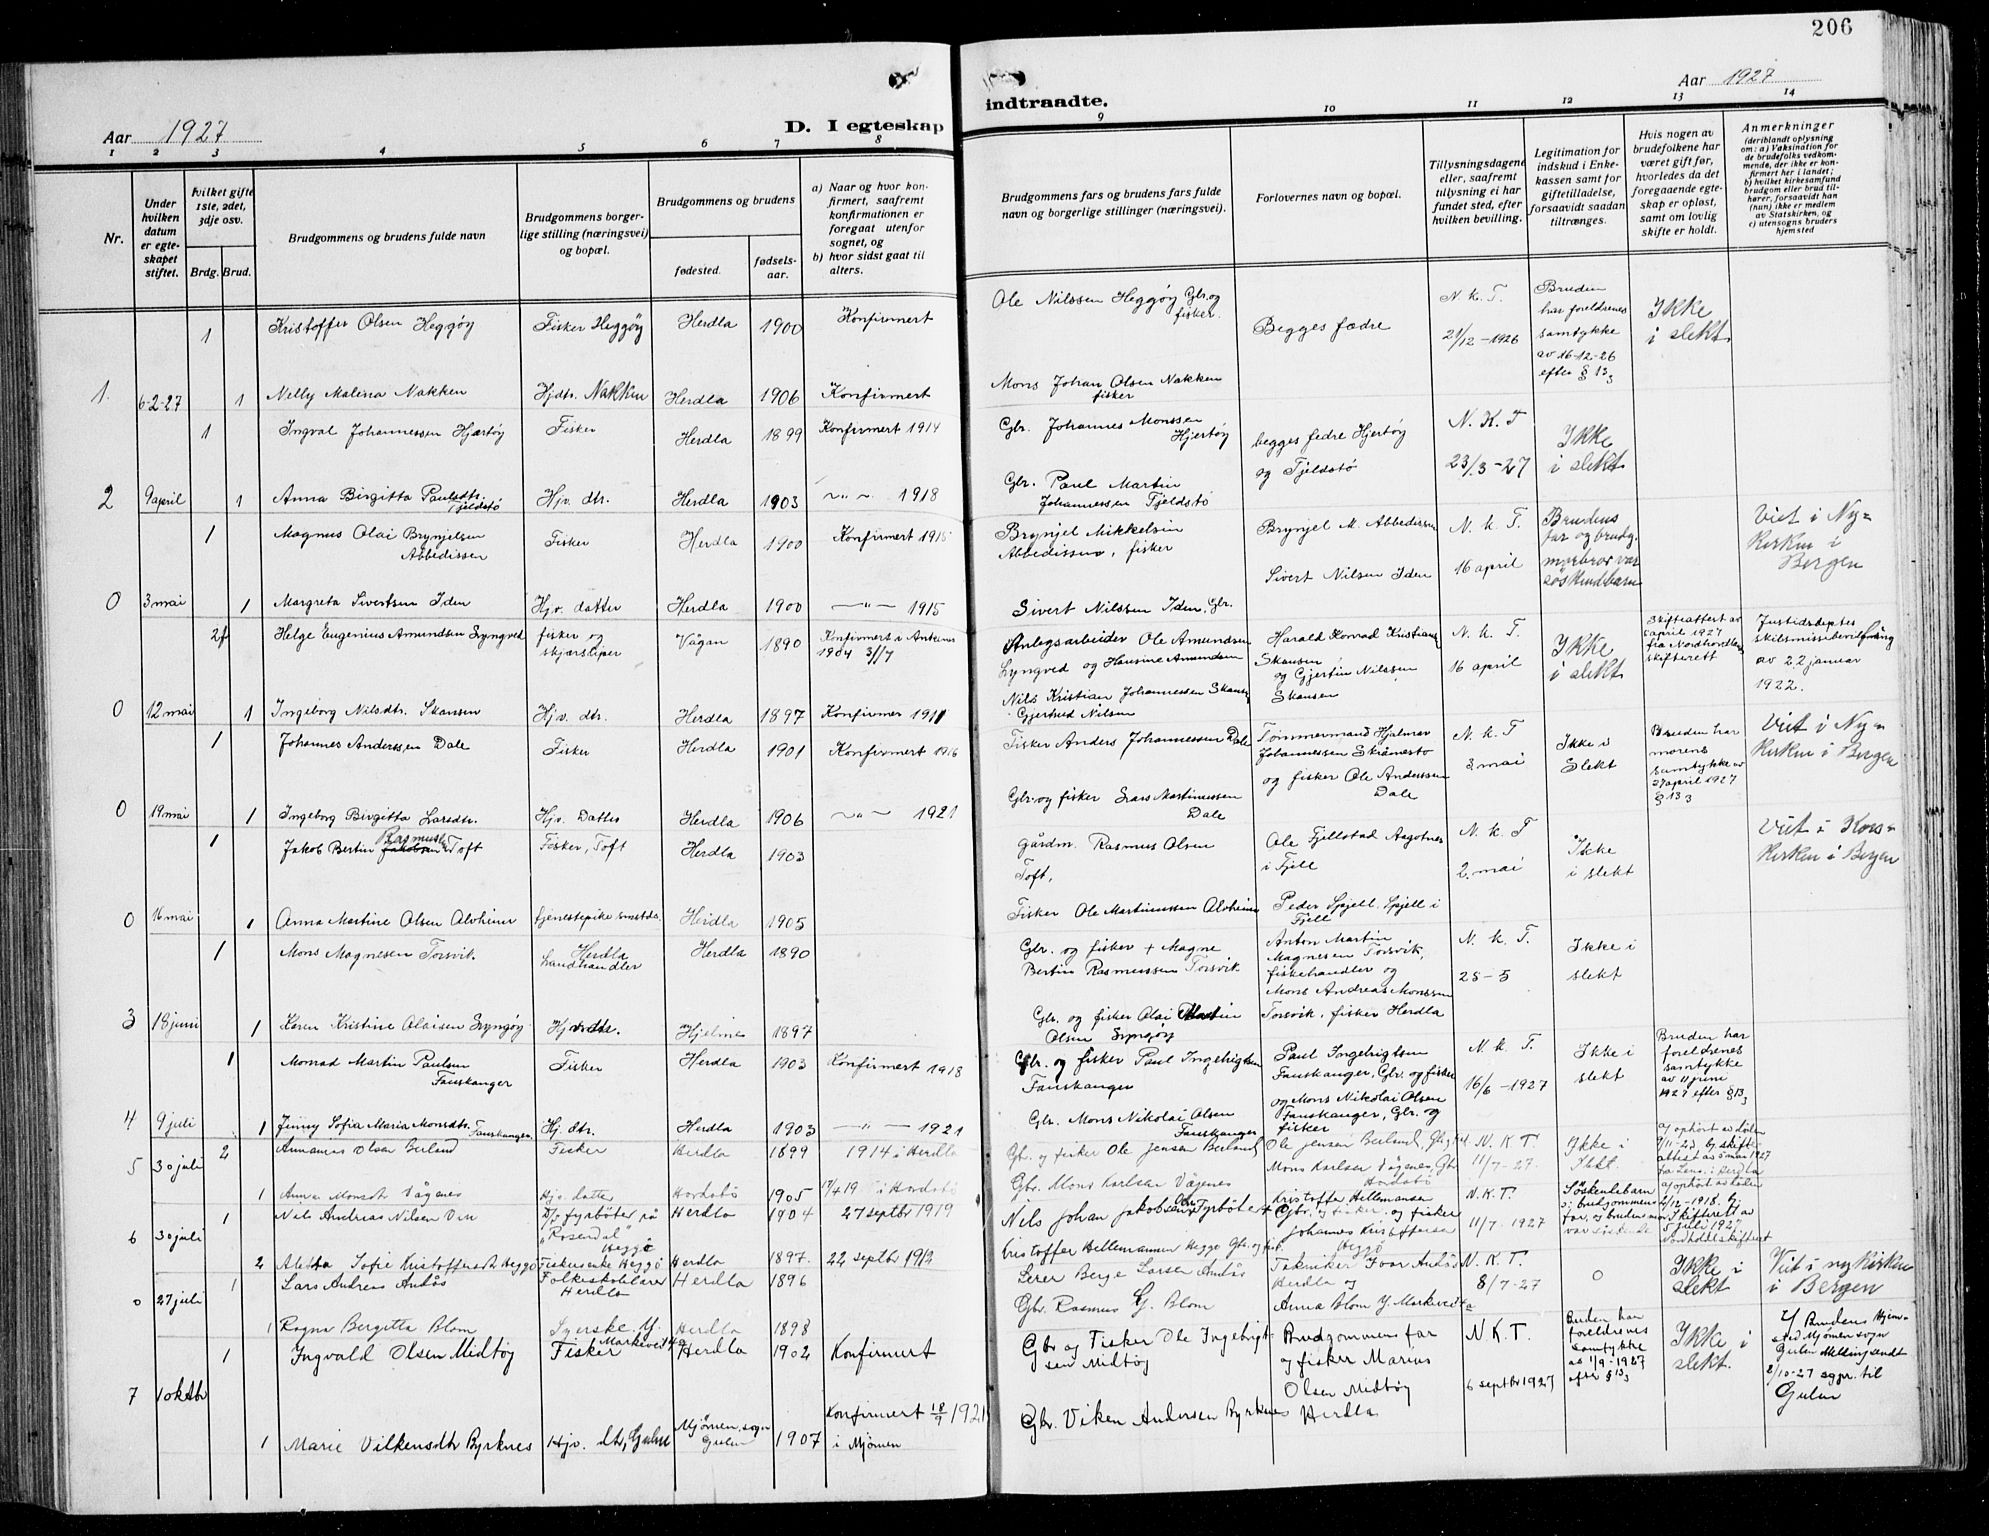 206
Aar 1927
D. I egteskap
indtraadte.
Aar 1927
1 2 3 4 5 6 7 8
9 10 11 12 13 14
Nr.
Under hvilken datum er egteskapet stiftet.
hvilket gifte 1ste, 2det, 3dje osv.
Brdg. Brud.
Brudgommens og brudens fulde navn
Brudgommens borgerlige stilling (næringsvei) og bopæl.
Brudgommens og brudens
fødested.
fødselsaar.
a) Naar og hvor konfirmert, saafremt konfirmationen er foregaat utenfor sognet, og
b) hvor sidst gaat til alters.
Brudgommens fars og brudens fars fulde navn og borgerlige stillinger (næringsvei).
Forlovernes navn og bopæl.
Tillysningsdagene eller, saafremt tillysning ei har fundet sted, efter hvilken bevilling.
Legitimation for indskud i Enkekassen samt for giftetilladelse, forsaavidt saadan tiltrænges.
Hvis nogen av brudefolkene har været gift før, hvorledes da det foregaaende egteskap er opløst, samt om lovlig skifte er holdt.
Anmerkninger
(deriblandt oplysning om: a) Vaksination for de brudefolks vedkommende, der ikke er konfirmert her i landet; b) hvilket kirkesamfund brudgom eller brud tilhører, forsaavidt han (hun) ikke er medlem av Statskirken, og c) utensogns bruders hjemsted
1 Kristoffer Olsen Heggøy Fisker Heggøy Herdla 1900 Konfirmert
Ole Nilssen Heggøy Gbr. og fisker. Begges fædre N.k.T. 21/12-1926 Bruden har foreldrenes samtykke av 16-12-26 efter § 13 3 Ikke i slekt
1. 6-2-27 1 Nelly Malena Nakken Hjdtr. Nakken Herdla 1906 Konfirmert
Mons Johan Olsen Nakken fisker
1 Ingval Johannessen Hjærtøy Fisker Herdla 1899 Konfirmert 1914
Gbr. Johannes Monssen Hjertøy begges fedre Hjertøy og Tjeldstø N.K.T 23/3-27 Ikke i slekt
2 9 april 1 Anna Birgitta Paulsdtr. Tjeldstø Hjv. dtr. Herdla 1903 ~"~ 1918
Gbr. Paul Martin Johannessen Tjeldstø
1 Magnus Olai Brynjelsen Abbedissen Fisker Herdla 1900 Konfirmert 1915
Brynjel Mikkelsen Abbedissen, fisker Brynjel M. Abbedissen N.k.T. 16 april Brudens far og brudg. morbror var søskendbarn Viet i Nykirken i Bergen
0 3 mai 1 Margreta Sivertsen Iden Hjv. datter Herdla 1900 —"— 1915
Sivert Nilsen Iden, Gbr. Sivert Nilsen Iden
2f Helge Eugenius Amundsen Lyngved fisker og skjærsliper Vågan 1890 Konfirmert i 1904 3/7
Anlegsarbeider Ole Amundsen Lyngved og Hansine Amundsen Harald Konrad Kristians Skansen og Gjertin Nilssen Skansen N.k.T. 16 april Ikke i slekt Skifteattest av april 1927 fra Nordhordland skifterett Justidsdeptes skilsmissebevilgning av 22 januar 1922.
0 12 mai 1 Ingeborg Nilsdtr. Skansen Hjv. dtr. Herdla 1897 Konfirmer 1911
Nils Kristian Johannessen Skansen Gjertrud Nilsen
1 Johannes Anderssen Dale Fisker Herdla 1901 Konfirmert 1916
Fisker Anders Johannessen Dale Tømmermand Hjalmar Johannessen Skråmestø og fisker Ole Anderssen Dale N.k.T 3 mai Ikke i Slekt Bruden har morens samtykke av 27 april 1927 § 13 3 Viet i Nykirken i Bergen
0 19 mai 1 Ingeborg Birgitta Larsdtr. Hjv. Datter Herdla 1906 ~"~ 1921
Gbr. og fisker Lars Martinussen Dale
1 Jakob Bertin Rasmussen Toft Fisker, Toft Herdla 1903
gårdm. Rasmus Olsen Toft, Ole Fjellstad Aagotnes i Fjell N.k.T 2. mai Ikke i slekt Viet i Korskirken i Bergen
0 16 mai 1 Anna Martine Olsen Alvheim tjenestepike Herdla 1905
Fisker Ole Martinussen Alvheim Peder Spjell, Spjell i Fjell
1 Mons Magnesen Torsvik. Herdla Landhandler Herdla 1890
Gbr. og fisker + Magne Bertin Rasmussen Torsvik Anton Martin Magnesen Torsvik, fiskehandler og Mons Andreas Monssen Torsvik. fisker Herdla N.k.T. 25-5 Ikke i slekt
3 18 juni 1 Karen Kristine Olaisen Lyngøy Hjv. dtr. Hjelme 1897
Gbr. og fisker Olai Martin Olsen Lyngøy
1 Monrad Martin Paulsen Fauskanger Fisker Herdla 1903 Konfirmert 1918
Gbr. og fisker Paul Ingebrigtsen Fauskanger Paul Ingebrigtsen Fauskanger, Gbr. og fisker og Mons Nikolai Olsen Fauskanger, Gbr. og fisker N.k.T. 16/6-1927 Ikke i slekt Bruden har foreldrenes samtykke av 11 juni 1927 efter § 13 3
4 9 juli 1 Jenny Sofia Maria Monsdtr. Fauskanger Hj. dtr. Herdla 1903 —"— 1921
Gbr. Mons Nikolai Olsen Fauskanger
5 30 juli 2 Annanias Olsen Berland Fisker Herdla 1899 1914 i Herdla
Gbr. og fisker Ole Jensen Berland Ole Jensen Berland, Mons Karlsen Vågenes, Gbr Hordabø N.K.T. 11/7-27. Ikke i Slekt.
1 Anna Monsdtr Vågenes Hjv. datter Hordabø 1905 i Hordabø
Gbr. Mons Karlsen Vågenes
6 30 juli 1 Nils Andreas Nilsen fyrbøter på "Rosendal" Herdla 1904 27 septbr 1919
Nils Johan Jakobsen Fyrbøter Kristoffer Hellemansen Gbr. og fisker Johannes Kristoffersen Heggø N.K.T. 11/7-1927 Søskenebarn
2 Sofie Kristoffersdtr Heggø Fiskerenke Heggø Herdla 1897. 22 septbr 1912
Kristoffer Hellemansen Heggø Gbr. og fisk.
0 27 juli 1 Lars Andreas Andås Folkeskolelærer Herdla Herdla 1896
Lærer Berge Larsen Andås Tekniker Ivar Andås Herdla og Anna Blom N.K.T. 8/7-27 0 Ikke i slekt Viet i nykirken i Bergen
1 Ragna Bergitta Blom Syerske Herdla 1898
Gbr. Rasmus G. Blom
1 Ingvald Olsen Midtøy Fisker Herdla 1902 Konfirmert
Gbr og Fisker Ole Ingebrigtsen Midtøy Brudgommens far og fisker Marius Olsen Midtøy Herdla N.K.T. 6 septbr 1927 Bruden har foreldrenes samtykke av 1/9-1927 efter § 13 3 Ikke i slekt. Brudens Hjemsted Mjømen sogn Gulen Melding sendt 2/10-27 sgpr. til Gulen
7 1 oktbr 1 Marie Vilkensdtr Byrknes Hjv. dtr, Gulen Mjømen, sogn Gulen 1907 Konfirmert 18/9 1921 i Mjømen
Gbr. Viken Andersen Byrknes